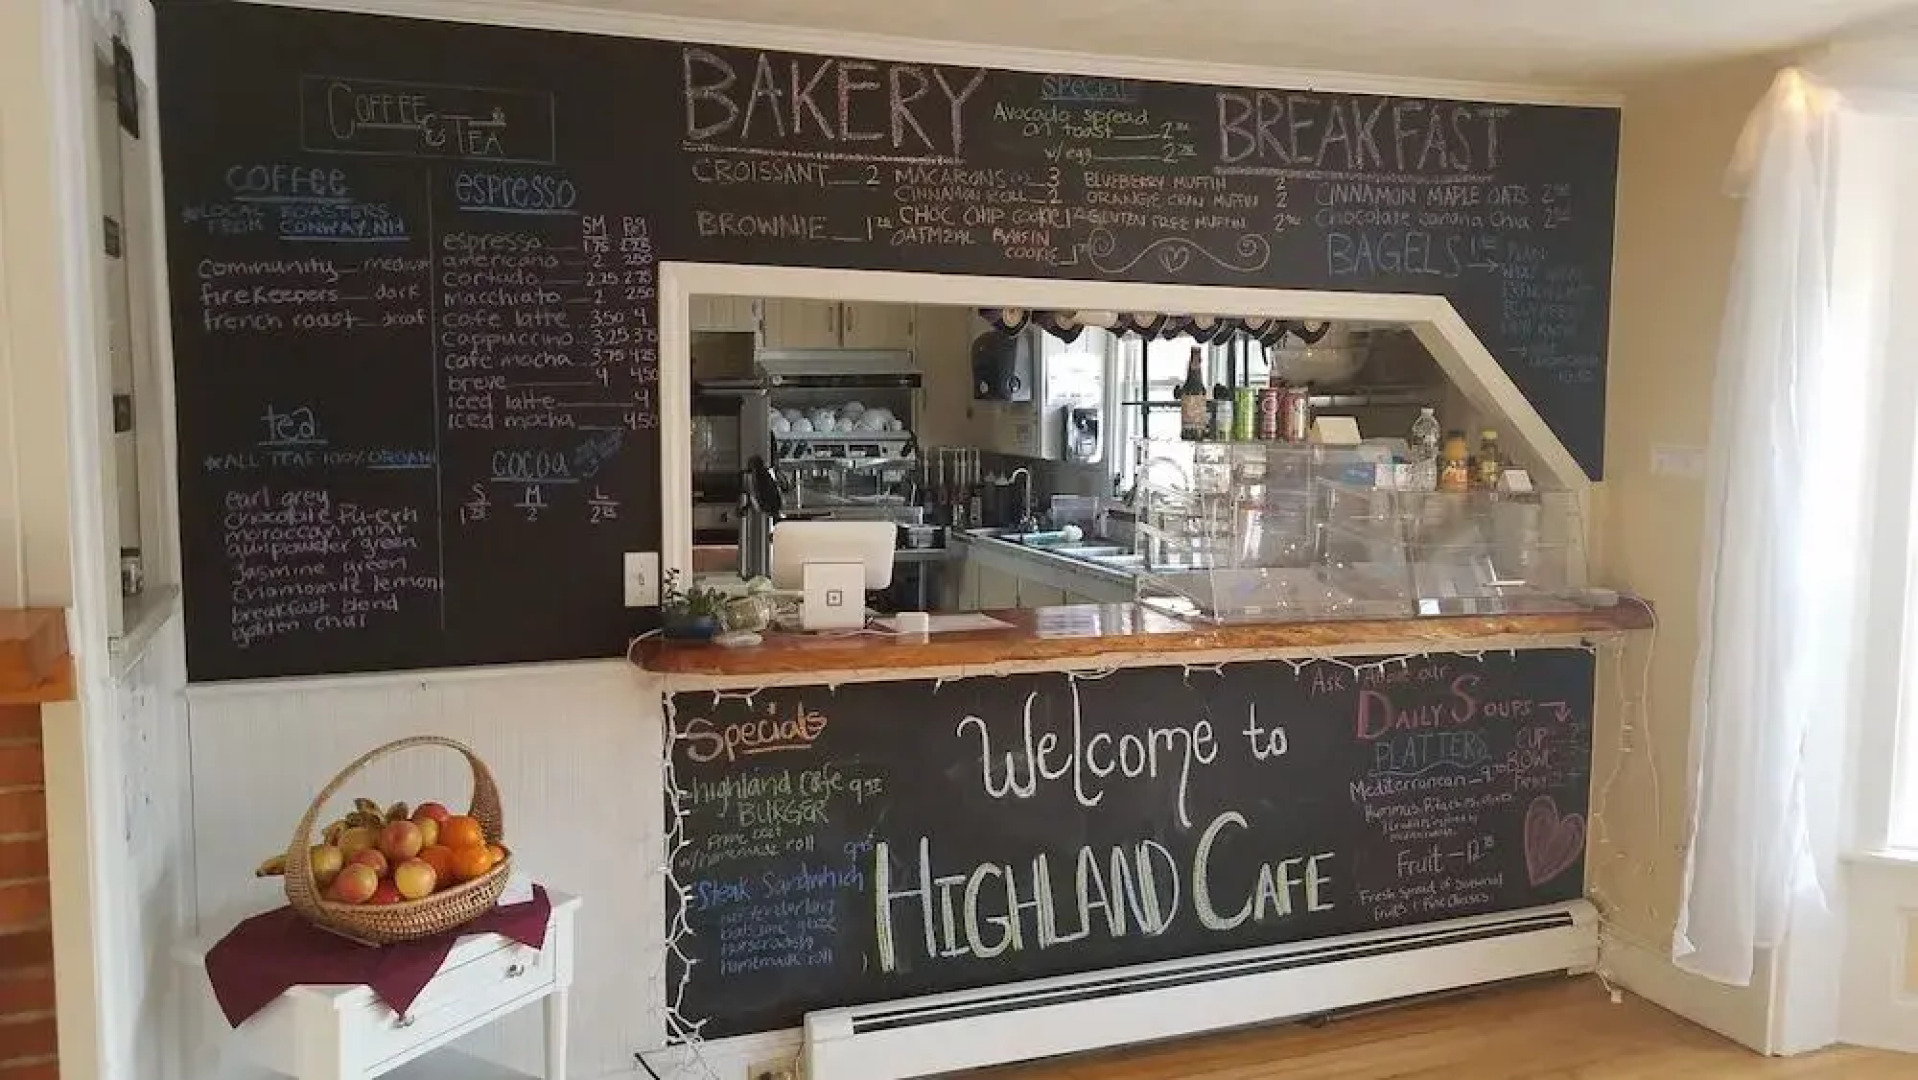 COFFEE
& TEA
COFFEE
*LOCAL ROASTERS
FROM CONWAY, NH
Community medium
fire Keepers dark
french roast decaf
tea
*ALL TEAS 100% ORGANI
earl grey
chocolate Pu-erh
moroccan mint
gunpowder green
Jasmine green
Chamomile lemon
breakfast blend
golden chai
espresso
SM BG
espresso 1.75 2.25
americano 2 2.50
cortado 2.25 2.75
macchiato 2 2.50
cafe latte 3.50 4
cappuccino 3.25 3.75
cafe mocha 3.75 4.25
breve 4 4.50
Iced latte 4
Iced mocha 4.50
COCOA
S M L
1.75 2 2.25
BAKERY
CROISSANT 2
BROWNIE 1
MACARONS 3
CINNAMON ROLL 2
CHOC CHIP COOKIE 1
OATMEAL RAISIN
COOKIE
SPECIAL
Avocado spread
on toast 2
w/egg 2
BLUEBERRY MUFFIN 2
ORANGE CRAN MUFFIN 2
GLUTEN FREE MUFFIN 2
BREAKFAST
CINNAMON MAPLE OATS 2
Chocolate banana Chia 2
BAGELS 1
PLAIN
Specials
highland cafe 9
BURGER
w/homemade roll
Steak Sandwhich
balsamic glaze
horseradish
homemade roll
Welcome to
HIGHLAND CAFE
Ask About our
DAILY SOUPS
CUP
BOWL
PLATTERS
Mediterranean
Fruit 12
Fresh Spread of Seasonal
Fruits + Fine Cheeses